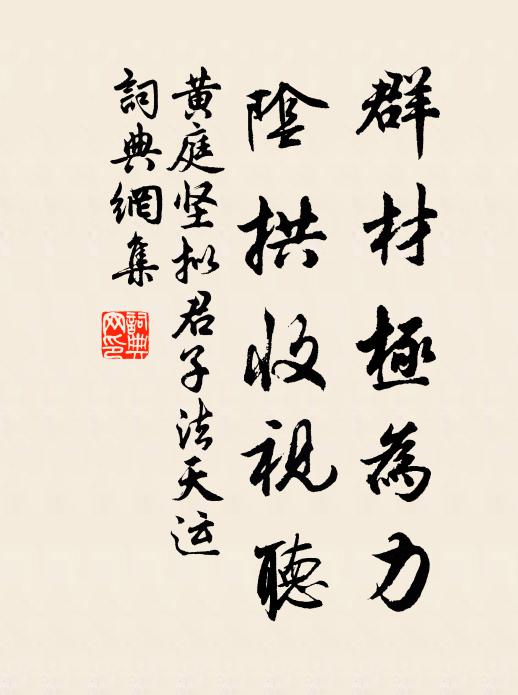 群材極為力
陰拱收視聽
黄庭坚拟君子法天运
詞典網集
詞典
网印